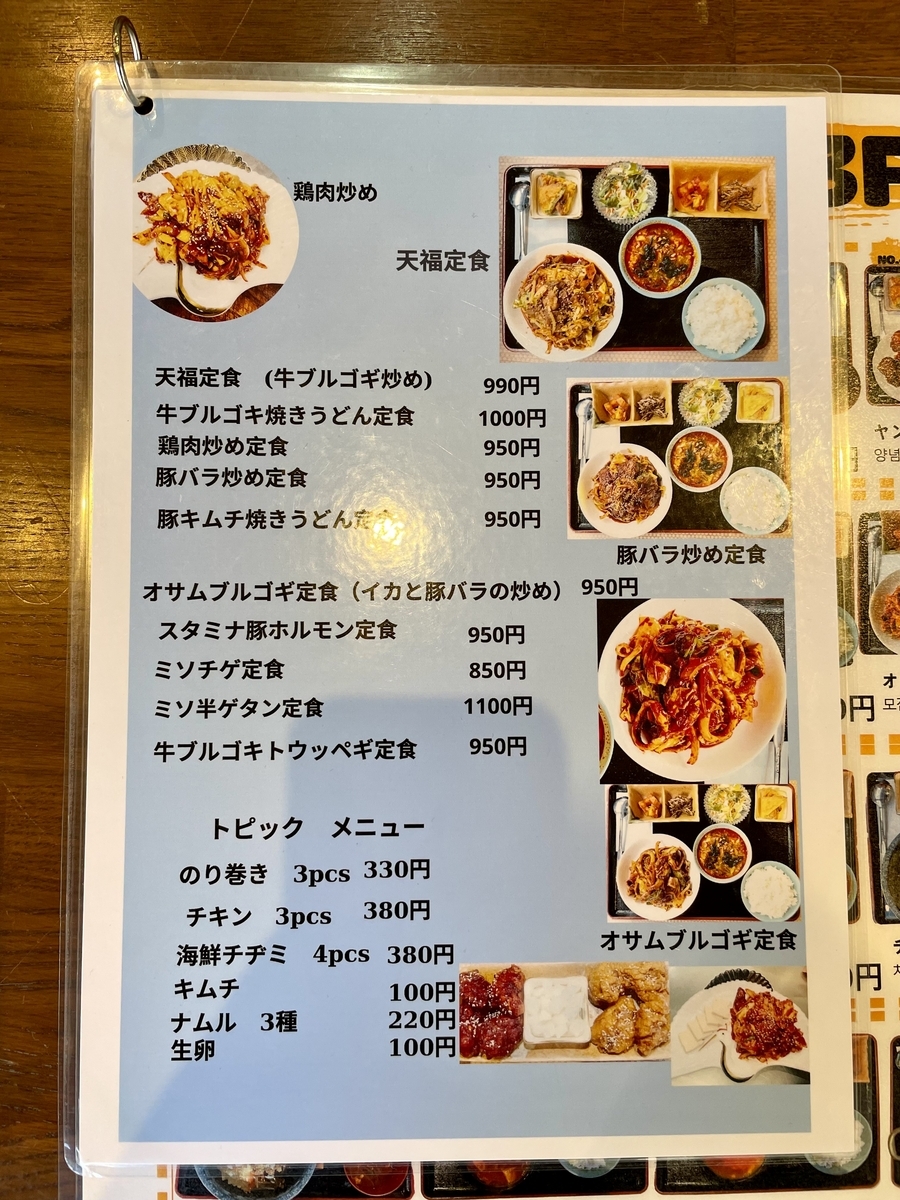 鶏肉炒め
天福定食
天福定食 (牛ブルゴギ炒め) 990円
牛ブルゴキ焼きうどん定食 1000円
鶏肉炒め定食 950円
豚バラ炒め定食 950円
豚キムチ焼きうどん定食 950円
豚バラ炒め定食
オサムブルゴギ定食（イカと豚バラの炒め） 950円
スタミナ豚ホルモン定食 950円
ミソチゲ定食 850円
ミソ半ゲタン定食 1100円
牛ブルゴキトウッペギ定食 950円
トピック メニュー
のり巻き 3pcs 330円
チキン 3pcs 380円
オサムブルゴギ定食
海鮮チヂミ 4pcs 380円
キムチ 100円
ナムル 3種 220円
生卵 100円
NO.
ヤン
양념
オ
円
모
円